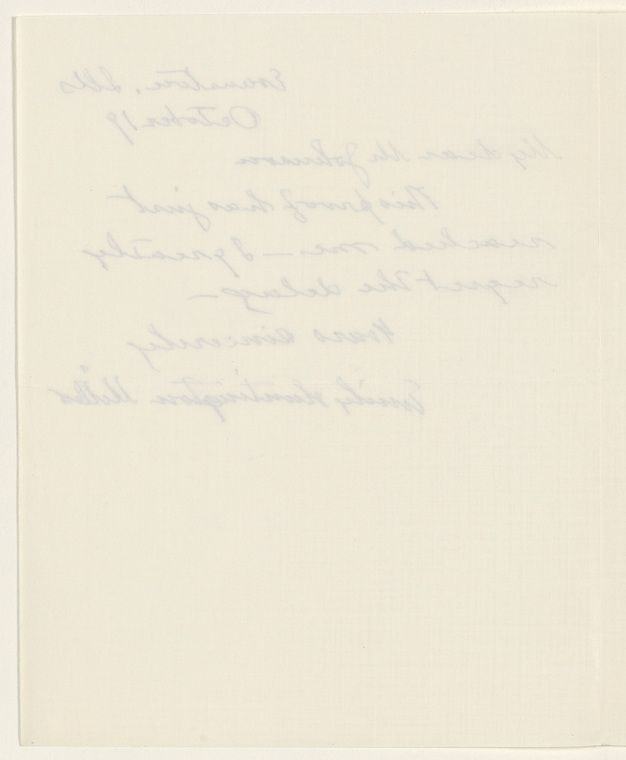 Evanston, Ills
October 19
My dear Mr Johnson
This proof has just
reached me — I greatly
regret the delay —
Yours sincerely
Emily Huntington Miller